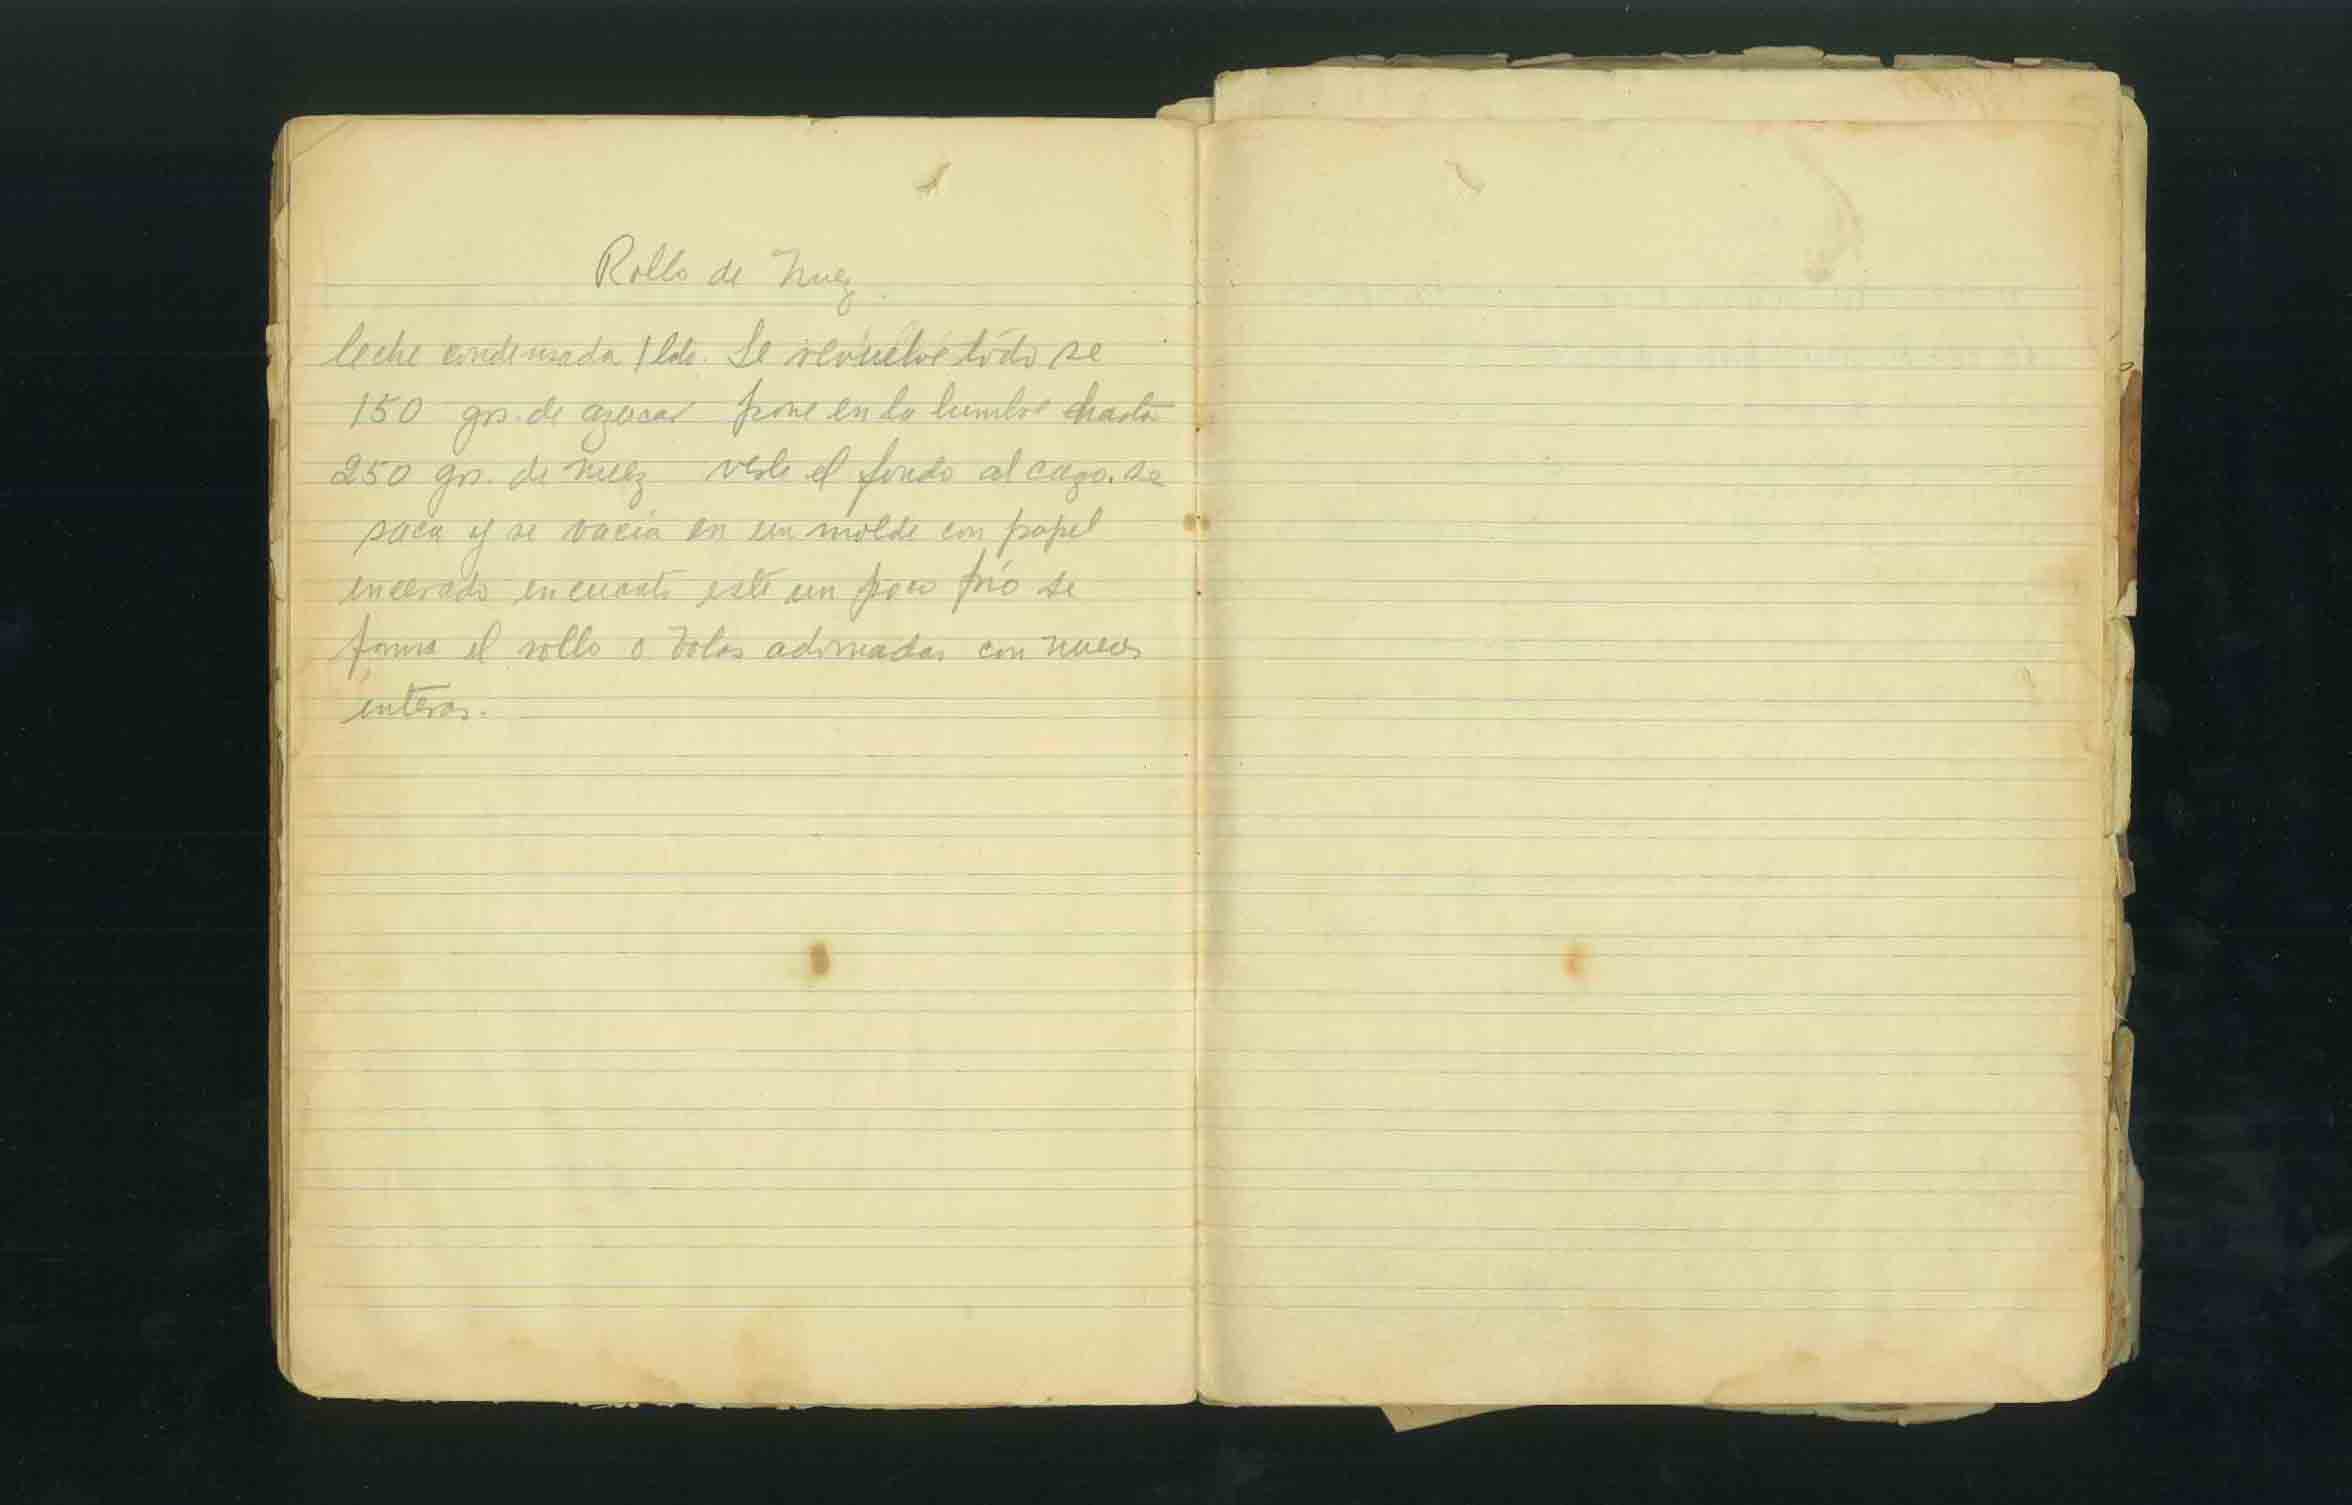 Rollo de Nuez
leche condensada 1 lda. Se revuelve todo se
150 grs. de azucar pone en la lumbre hasta
250 grs. de nuez verle el fondo al cazo. se
saca y se vacia en un molde con papel
encerado en cuanto esté un poco frío se
forma el rollo o bolas adornadas con nueces
enteras.